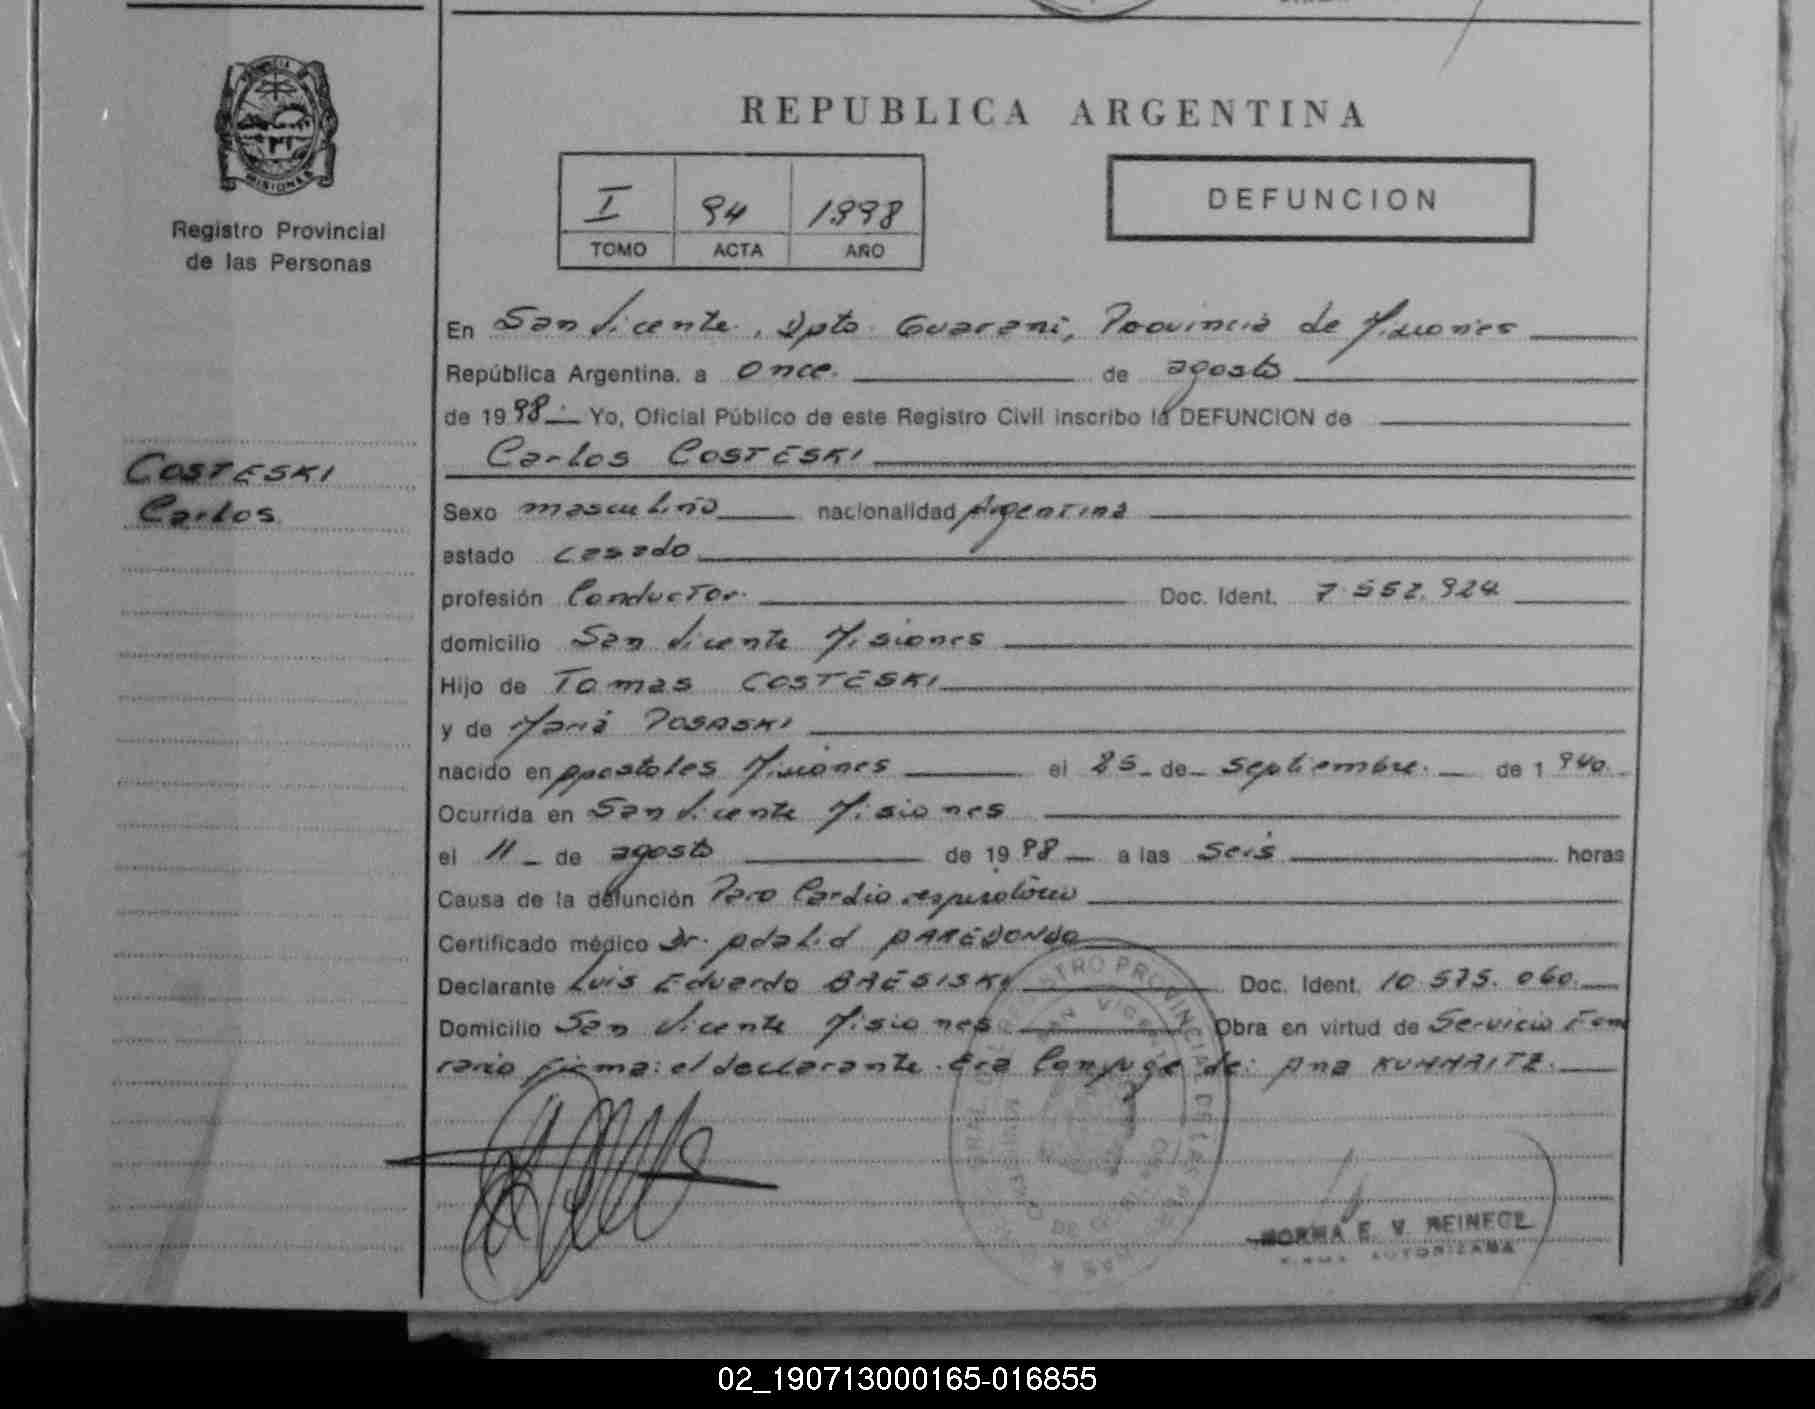 PROVINCIA DE
MISIONES
Registro Provincial
de las Personas
COSTESKI
Carlos
REPUBLICA ARGENTINA
I 94 1998
TOMO ACTA AÑO
DEFUNCION
En San Vicente, Dpto. Guarani, Provincia de Misiones
República Argentina, a once. de agosto
de 1998. Yo, Oficial Público de este Registro Civil inscribo la DEFUNCION de
Carlos COSTESKI
Sexo masculino nacionalidad Argentina
estado casado
profesión Conductor. Doc. Ident. 7.552.924
domicilio San Vicente Misiones
Hijo de Tomas COSTESKI
y de Maria POSASKI
nacido en Apostoles Misiones el 25 de septiembre. de 1940.
Ocurrida en San Vicente Misiones
el 11 de agosto de 1998 a las seis horas
Causa de la defunción Paro Cardio respiratorio
Certificado médico Dr. Adalid AREDONDO
Declarante Luis Eduardo BRESISKI Doc. Ident. 10.575.060.
Domicilio San Vicente Misiones Obra en virtud de Servicio Fune
rario firma: el declarante. Era Conyuge de: Ana KUMMRITZ.
REGISTRO PROVINCIAL DE LAS PERSONAS
SAN VICENTE
NORMA E. V. REINECK
FIRMA AUTORIZADA
02_190713000165-016855